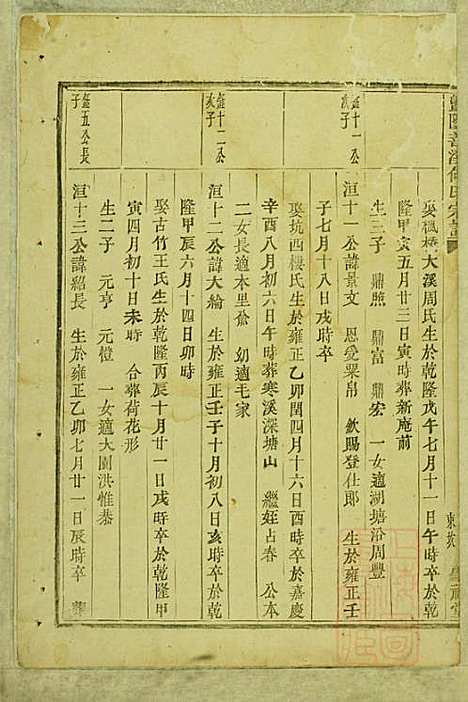 娶楓橋大溪周氏生於乾隆戊午七月十一日午時卒於乾
隆甲寅五月廿三日寅時葬新庵前
生三子　鼎照　鼎富　鼎宏　一女適湖塘沿周豐
洹十一公諱景文　恩愛粟帛　欽賜登仕郎　生於雍正壬
子七月十八日戌時卒
娶坑西樓氏生於雍正乙卯閏四月十六日酉時卒於嘉慶
辛酉八月初六日午時葬寒溪深塘山　繼姪占春　公本
二女長適本里俞　幼適毛家
洹十二公諱大綸　生於雍正壬子十月初八日亥時卒於乾
隆甲辰六月十四日卯時
娶古竹王氏生於乾隆丙辰十月廿一日戌時卒於乾隆甲
寅四月初十日未時　合葬荷花形
生二子　元亨　元憕　一女適大園洪惟恭
洹十三公諱紹長　生於雍正乙卯七月廿一日辰時卒　葬
十一公
子
十二公
子
五公長
子